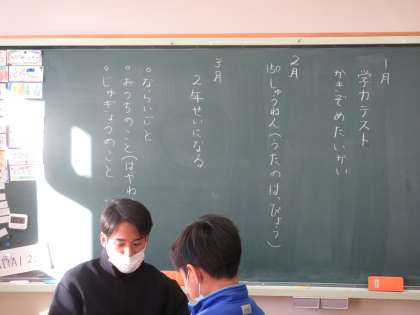 1月
学力テスト
かきぞめたいかい
2月
150しゅうねん(うたのはっぴょう)
3月
2年せいになる
○ならいごと
○おうちのこと(はやね
○じゅぎょうのこと